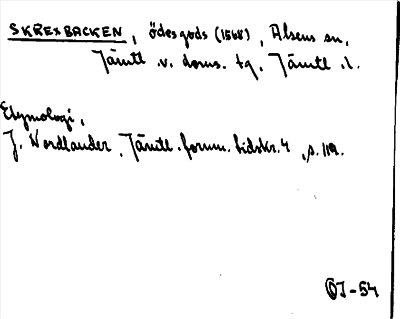 SKREXBACKEN, ödesgods (1568), Alsens sn,
Jämtl. v. doms. tg. Jämtl. l.
Etymologi,
J. Nordlander, Jämtl. fornm. tidskr. 4, s. 119.
OJ-54